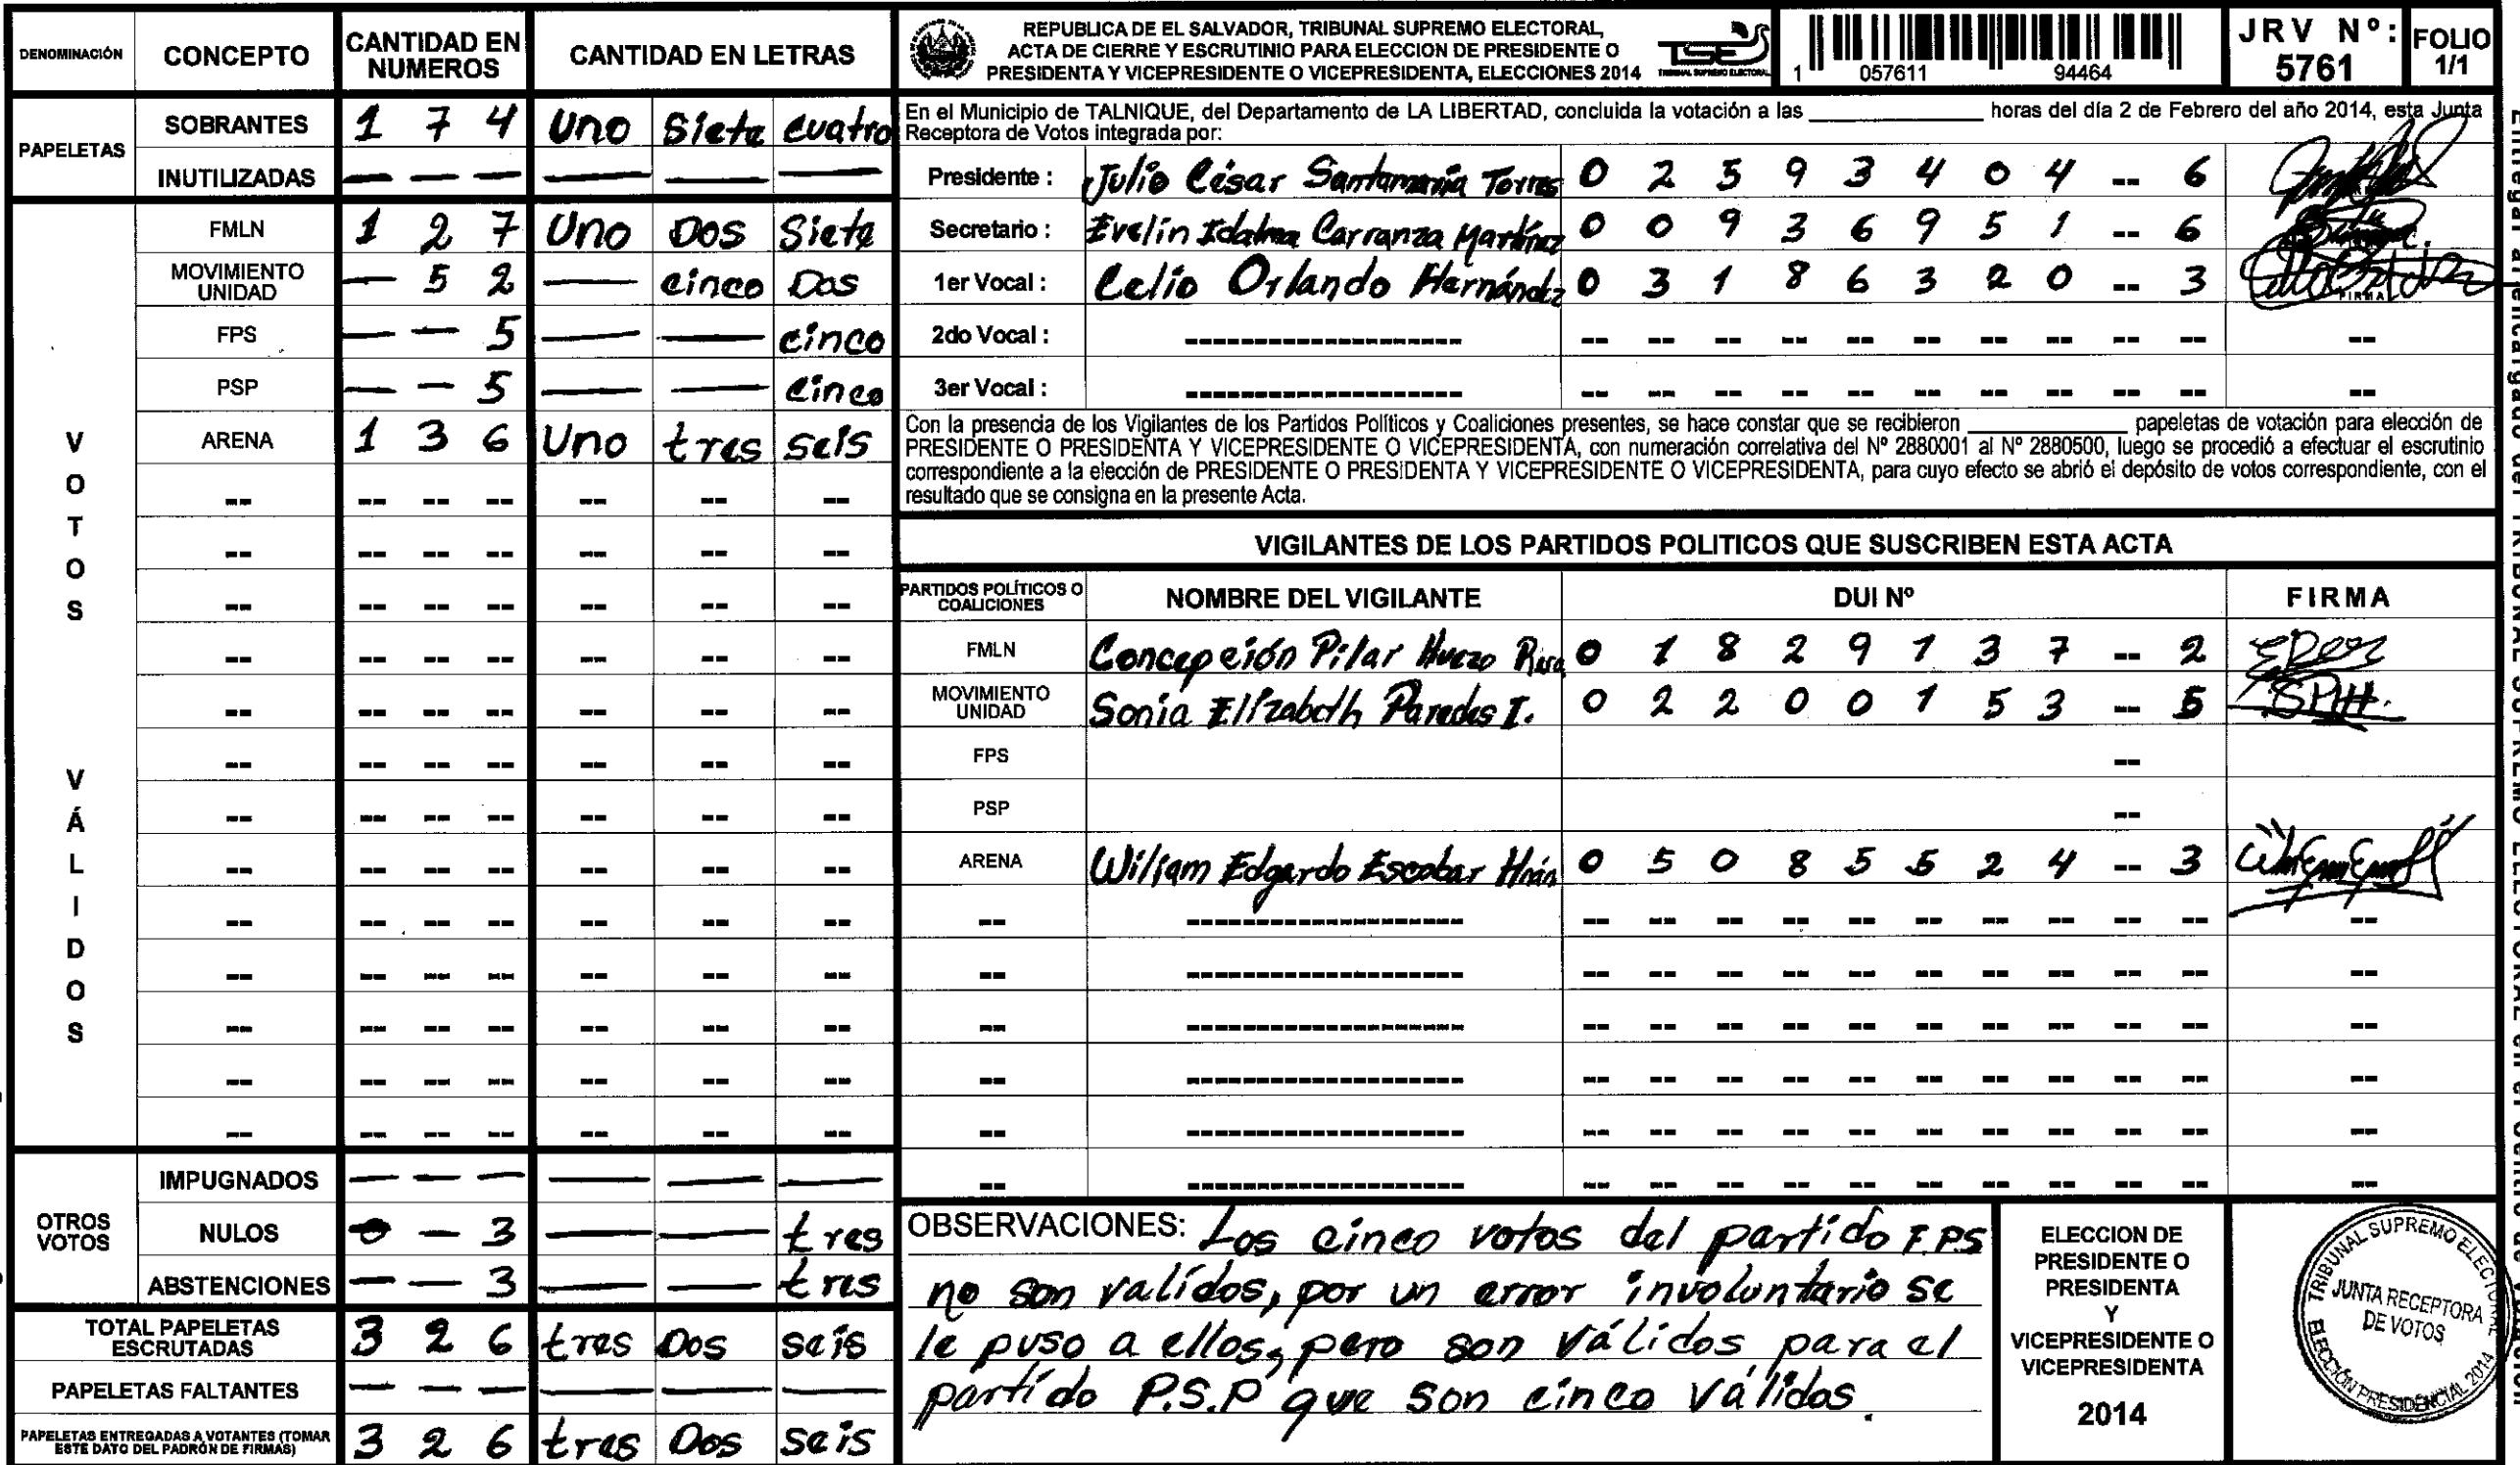 DENOMINACIÓN CONCEPTO CANTIDAD EN NUMEROS CANTIDAD EN LETRAS
PAPELETAS
SOBRANTES 1 7 4 Uno Siete cuatro
INUTILIZADAS — — — — — —
VOTOS VÁLIDOS
FMLN 1 2 7 Uno Dos Siete
MOVIMIENTO UNIDAD — 5 2 — cinco Dos
FPS — — 5 — — cinco
PSP — — 5 — — cinco
ARENA 1 3 6 Uno tres seis
OTROS VOTOS
IMPUGNADOS — — — — — —
NULOS 0 — 3 — — tres
ABSTENCIONES — — 3 — — tres
TOTAL PAPELETAS ESCRUTADAS 3 2 6 tres Dos seis
PAPELETAS FALTANTES — — — — — —
PAPELETAS ENTREGADAS A VOTANTES (TOMAR ESTE DATO DEL PADRÓN DE FIRMAS) 3 2 6 tres Dos seis
REPUBLICA DE EL SALVADOR, TRIBUNAL SUPREMO ELECTORAL,
ACTA DE CIERRE Y ESCRUTINIO PARA ELECCION DE PRESIDENTE O
PRESIDENTA Y VICEPRESIDENTE O VICEPRESIDENTA, ELECCIONES 2014
TSE
TRIBUNAL SUPREMO ELECTORAL
1 057611 94464
JRV Nº: 5761
FOLIO 1/1
En el Municipio de TALNIQUE, del Departamento de LA LIBERTAD, concluida la votación a las ________ horas del día 2 de Febrero del año 2014, esta Junta
Receptora de Votos integrada por:
Presidente : Julio César Santamaría Torres 0 2 5 9 3 4 0 4 -- 6
Secretario : Evelin Idalma Carranza Martínez 0 0 9 3 6 9 5 1 -- 6
1er Vocal : Celio Orlando Hernández 0 3 1 8 6 3 2 0 -- 3
FIRMA
2do Vocal : -- -- -- -- -- -- -- -- -- -- --
3er Vocal : -- -- -- -- -- -- -- -- -- -- --
Con la presencia de los Vigilantes de los Partidos Políticos y Coaliciones presentes, se hace constar que se recibieron ________ papeletas de votación para elección de
PRESIDENTE O PRESIDENTA Y VICEPRESIDENTE O VICEPRESIDENTA, con numeración correlativa del Nº 2880001 al Nº 2880500, luego se procedió a efectuar el escrutinio
correspondiente a la elección de PRESIDENTE O PRESIDENTA Y VICEPRESIDENTE O VICEPRESIDENTA, para cuyo efecto se abrió el depósito de votos correspondiente, con el
resultado que se consigna en la presente Acta.
VIGILANTES DE LOS PARTIDOS POLITICOS QUE SUSCRIBEN ESTA ACTA
PARTIDOS POLÍTICOS O COALICIONES NOMBRE DEL VIGILANTE DUI Nº FIRMA
FMLN Concepción Pilar Huezo 0 1 8 2 9 1 3 7 -- 2
MOVIMIENTO UNIDAD Sonia Elizabeth Paredes I. 0 2 2 0 0 1 5 3 -- 5
FPS --
PSP --
ARENA William Edgardo Escobar Hnán 0 5 0 8 5 5 2 4 -- 3
OBSERVACIONES: Los cinco votos del partido F.P.S
no son valídos, por un error involuntario se
le puso a ellos, pero son válidos para el
partído P.S.P que son cinco válidos.
ELECCION DE
PRESIDENTE O
PRESIDENTA
Y
VICEPRESIDENTE O
VICEPRESIDENTA
2014
TRIBUNAL SUPREMO ELECTORAL
JUNTA RECEPTORA
DE VOTOS
ELECCIÓN PRESIDENCIAL 2014